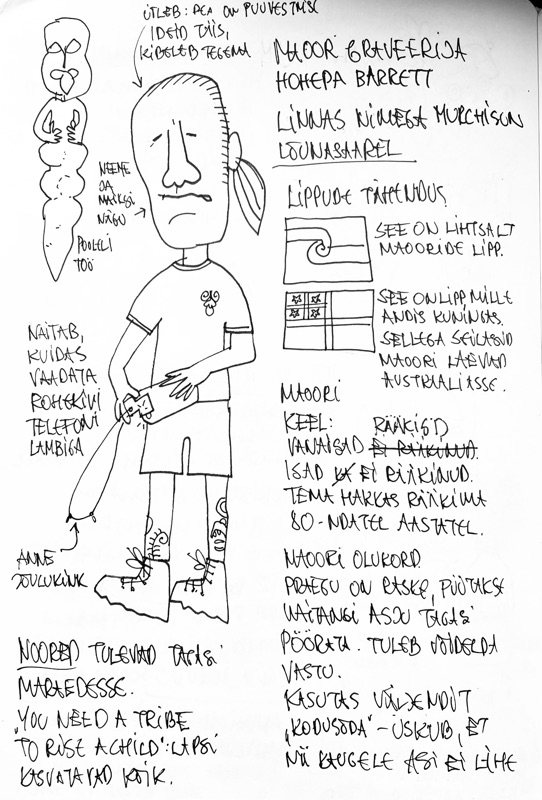 ÜTLEB: PEA ON PUUVESTMISE
IDEID TÄIS,
KIBELEB TEGEMA
MAOORI GRAVEERIJA
HOHEPA BARRETT
LINNAS NIMEGA MURCHISON
LÕUNASAAREL
NEEME
DA
MATSI
NÄGU
POOLELI
TÖÖ
LIPPUDE TÄHENDUS
SEE ON LIHTSALT
MAOORIDE LIPP.
SEE ON LIPP MILLE
ANDIS KUNINGAS.
SELLEGA SEILASID
MAOORI LAEVAD
AUSTRAALIASSE.
NÄITAB,
KUIDAS
VAADATA
ROHEKIVI
TELEFONI
LAMBIGA
ANNE
JOULUKINK
MAOORI
KEEL:
VANAISAD RÄÄKISID
ISAD EI RÄÄKINUD.
TEMA HAKKAS RÄÄKIMA
80-NDATEL AASTATEL.
MAOORI OLUKORD
PRAEGU ON RASKE, PÜÜTAKSE
WAITANGI ASJU TAGASI
PÖÖRATA. TULEB VÕIDELDA
VASTU.
KASUTAS VÄLJENDIT
„KODUSÕDA" - ÜSKUB, ET
NII KAUGELE ASI EI LÄHE
NOORED TULEVAD TAGASI
MARAEDESSE.
„YOU NEED A TRIBE
TO RISE A CHILD": LAPSI
KASVATAVAD KÕIK.